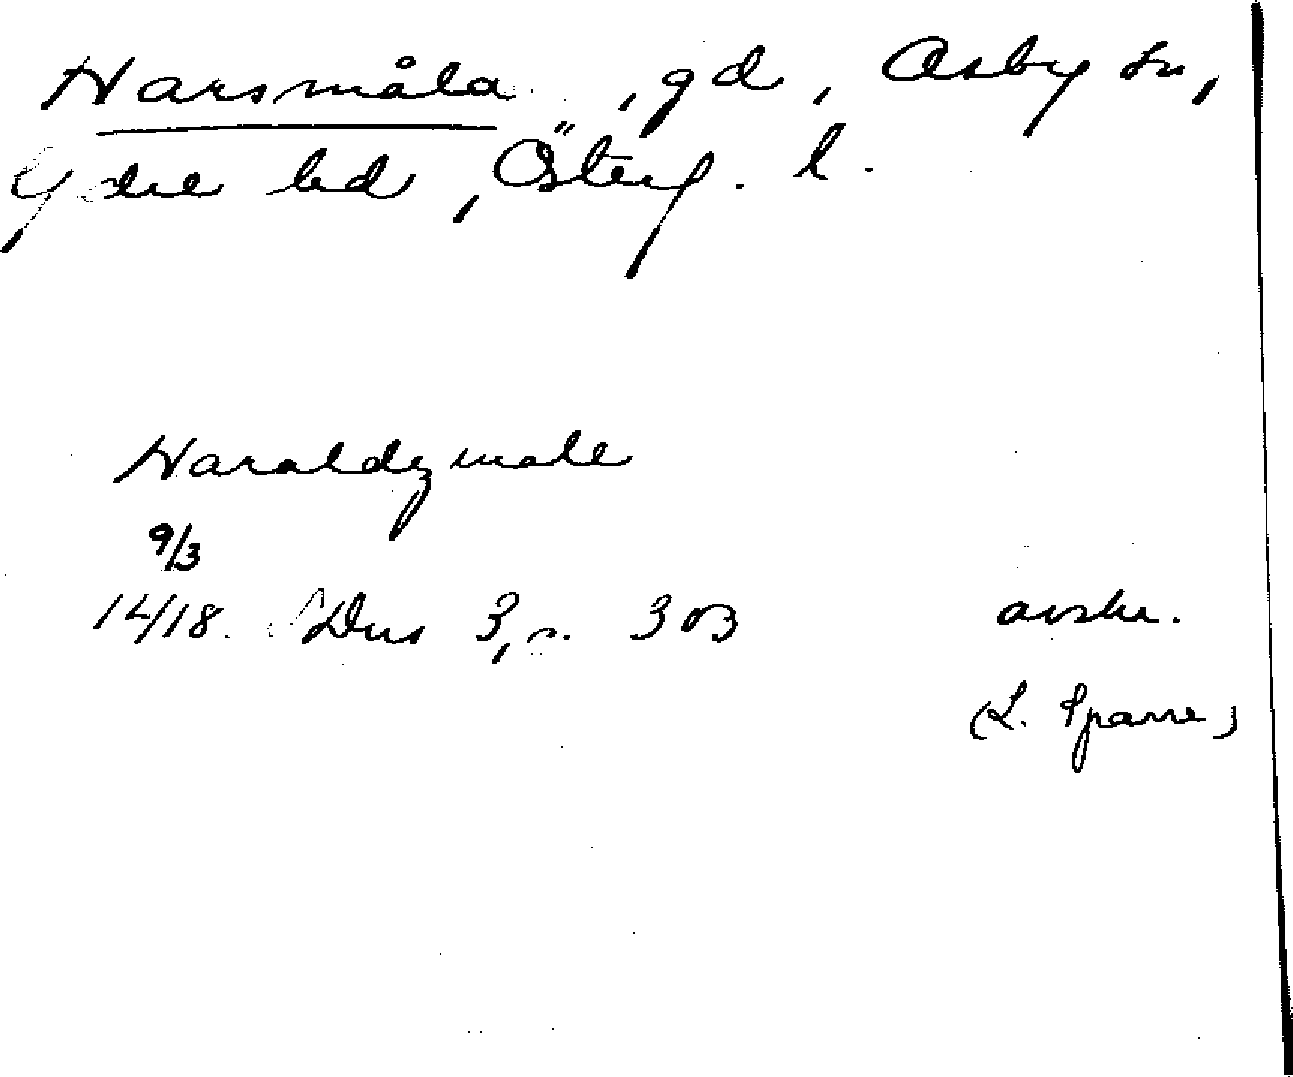 Harsmåla, gd, Asby sn,
Ydre hd, Österg. l.
Haraldzmale
9/3
1418. Dns 3, s. 303 avskr.
(L. Sparre)